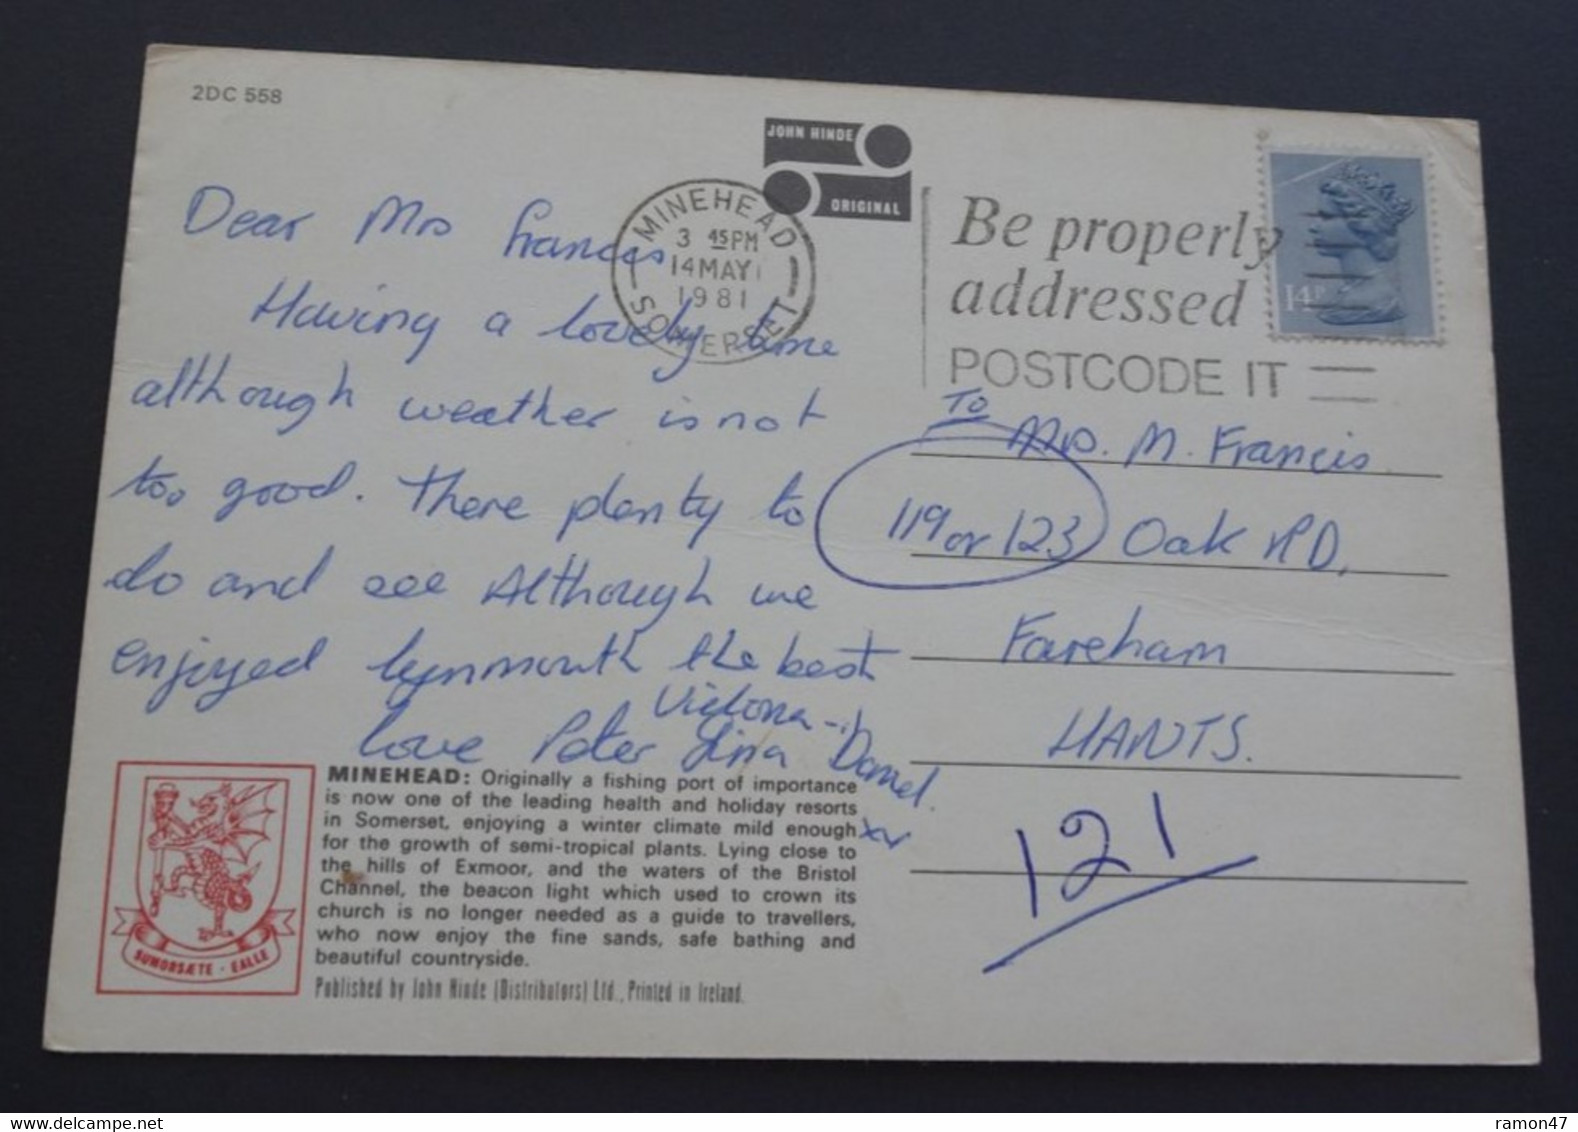 2DC 558
JOHN HINDE
ORIGINAL
MINEHEAD
3 45PM
14 MAY
1981
SOMERSET
Be properly
addressed
POSTCODE IT
14P
Dear Mrs Francis
Having a lovely time
although weather is not
too good. There plenty to
do and see Although we
enjoyed lynmouth the best
love Peter Lina Victoria - Daniel.
xx
To
Mrs. M. Francis
119 or 123 Oak RD,
Fareham
HANTS.
121
MINEHEAD: Originally a fishing port of importance
is now one of the leading health and holiday resorts
in Somerset, enjoying a winter climate mild enough
for the growth of semi-tropical plants. Lying close to
the hills of Exmoor, and the waters of the Bristol
Channel, the beacon light which used to crown its
church is no longer needed as a guide to travellers,
who now enjoy the fine sands, safe bathing and
beautiful countryside.
Published by John Hinde (Distributors) Ltd., Printed in Ireland.
SUMORSÆTE - EALLE
ramon47